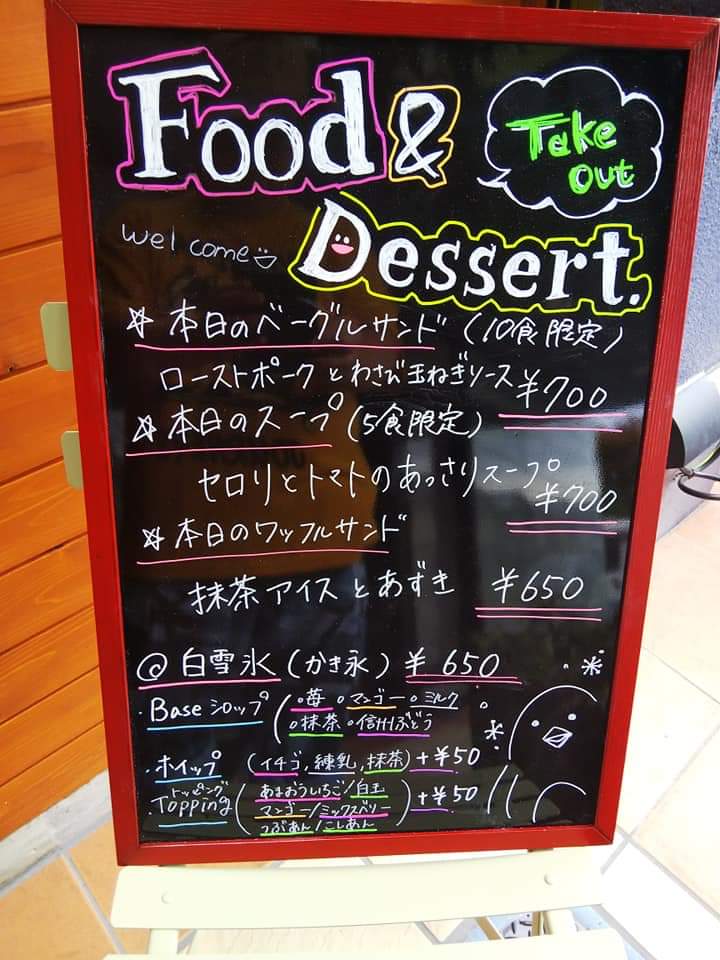 Food &
Take
out
welcome
Dessert.
☆本日のベーグルサンド (10食限定)
ローストポークとわさび玉ねぎソース ¥700
☆本日のスープ (5食限定)
セロリとトマトのあっさりスープ
¥700
☆本日のワッフルサンド
抹茶アイスとあずき ¥650
@白雪氷 (かき氷) ¥650
・Baseシロップ (○苺 ○マンゴー ○ミルク
○抹茶 ○信州ぶどう
・ホイップ (イチゴ, 練乳, 抹茶) +¥50
トッピング
・Topping (あまおういちご/白玉
マンゴー/ミックスベリー) +¥50
つぶあん/こしあん